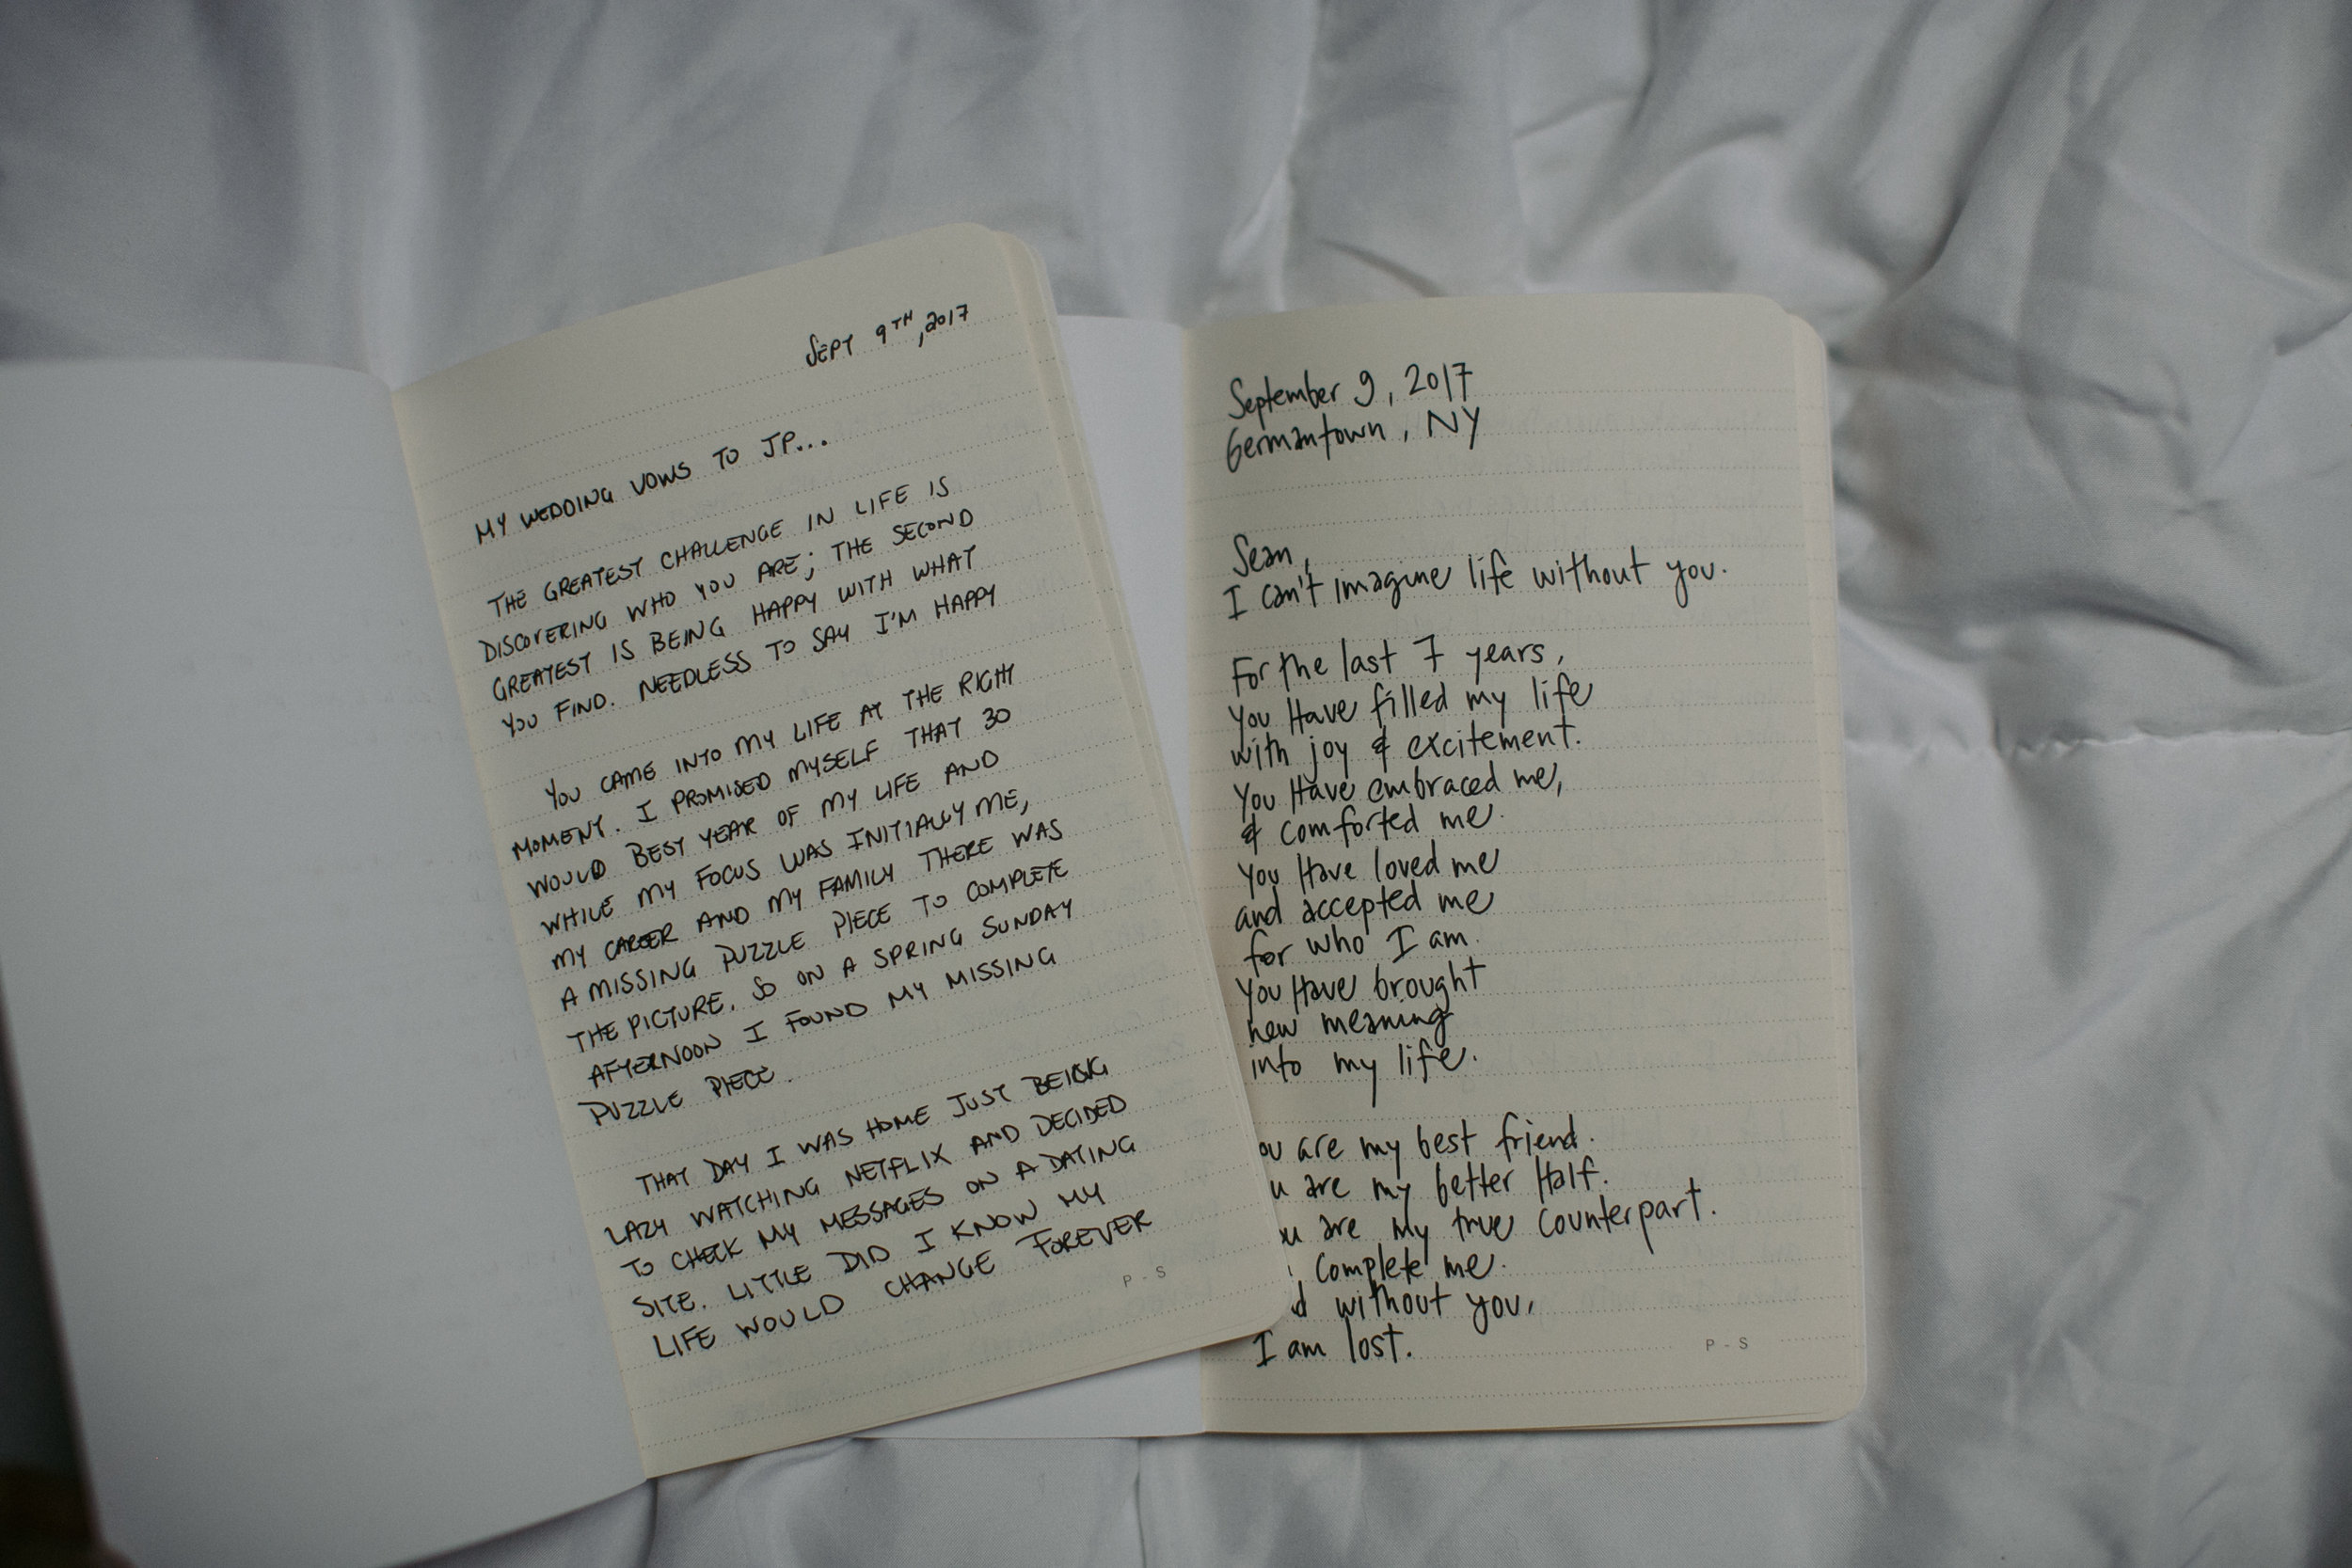 SEPT 9TH, 2017
MY WEDDING VOWS TO JP...
THE GREATEST CHALLENGE IN LIFE IS
DISCOVERING WHO YOU ARE; THE SECOND
GREATEST IS BEING HAPPY WITH WHAT
YOU FIND. NEEDLESS TO SAY I'M HAPPY
YOU CAME INTO MY LIFE AT THE RIGHT
MOMENT. I PROMISED MYSELF THAT 30
WOULD BEST YEAR OF MY LIFE AND
WHILE MY FOCUS WAS INITIALLY ME,
MY CAREER AND MY FAMILY THERE WAS
A MISSING PUZZLE PIECE TO COMPLETE
THE PICTURE. SO ON A SPRING SUNDAY
AFTERNOON I FOUND MY MISSING
PUZZLE PIECE.
THAT DAY I WAS HOME JUST BEING
LAZY WATCHING NETFLIX AND DECIDED
TO CHECK MY MESSAGES ON A DATING
SITE. LITTLE DID I KNOW MY
LIFE WOULD CHANGE FOREVER
P - S
September 9, 2017
Germantown, NY
Sean,
I can't imagine life without you.
For the last 7 years,
You Have filled my life
with joy & excitement.
You Have embraced me,
& comforted me.
You Have loved me
and accepted me
for who I am.
You Have brought
new meaning
into my life.
ou are my best friend.
u are my better Half.
u are my true counterpart.
complete me.
d without you,
I am lost.
P - S